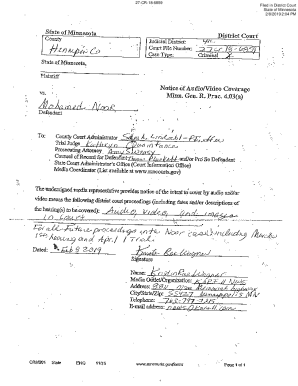 27-CR-18-6859
Filed in District Court
State of Minnesota
2/8/2019 2:04 PM
State of Minnesota
District Court
County
Hennepin Co
Judicial District:
Court File Number:
Case Type: Criminal
State of Minnesota,
Plaintiff
Notice of Audio/Video Coverage
Minn. Gen. R. Prac. 4.03(a)
vs.
Mohamed Noor
Defendant
To: County Court Administrator
Trial Judge Kathryn
Prosecuting Attorney Amy Sweasy
Counsel of Record for Defendant Plunkett and/or Pro Se Defendant
State Court Administrator's Office (Court Information Office)
Media Coordinator (List available at www.mncourts.gov)
The undersigned media representative provides notice of the intent to cover by audio and/or
video means the following district court proceedings (including dates and/or descriptions of
the hearing(s) to be covered): Audio, video, and images
in court
For all future proceedings in the Noor case including March
1st hearing and April 1 Trial.
Dated: Feb 8 2019
Signature
Name: Kristin Rae Wagner
Media Outlet/Organization:
Address: Highway
City/State/Zip: 55427 MN
Telephone:
E-mail address:
State
ENG
www.mncourts.gov/forms
Page 1 of 1